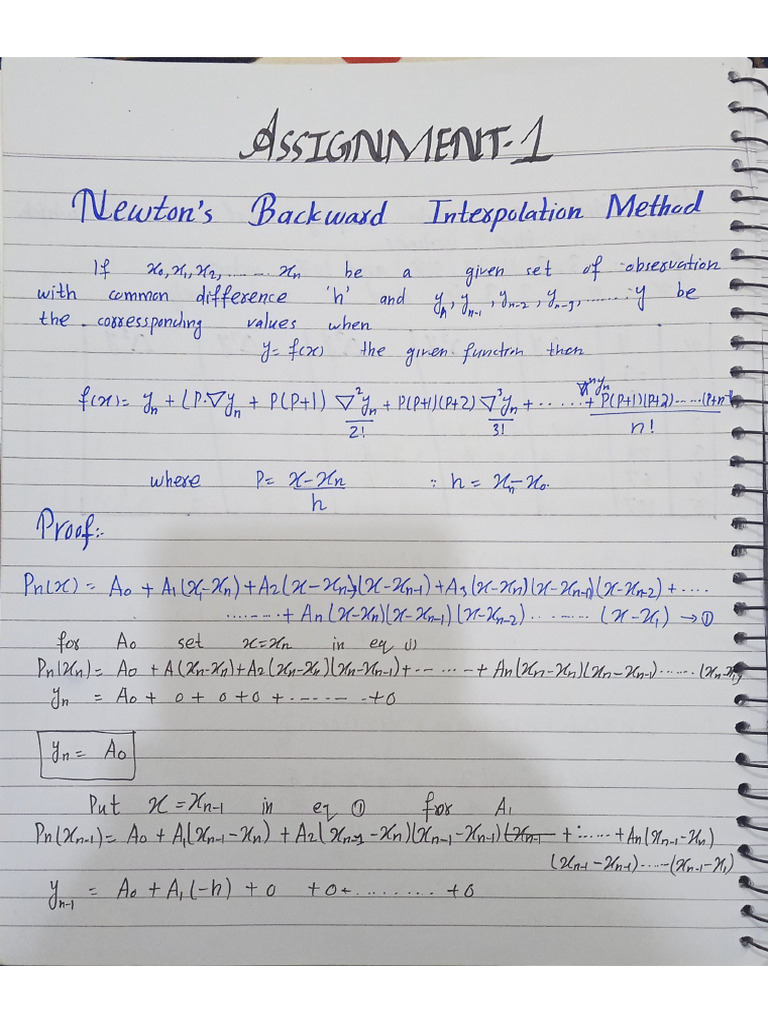 ASSIGNMENT-1
Newton's Backward Interpolation Method
If x₀,x₁,x₂,....... xₙ be a given set of observation
with common difference 'h' and yₙ, yₙ₋₁, yₙ₋₂, yₙ₋₃,.......y be
the corressponding values when
y = f(x) the given function then
f(x)= yₙ + (P.∇yₙ + P(P+1) ∇²yₙ/2! + P(P+1)(P+2) ∇³yₙ/3! + ...... + ∇ⁿyₙ P(P+1)(P+2)......(P+n-1)/n!
where P= x-xₙ/h ∵ h = xₙ-x₀.
Proof:-
Pn(x) = A₀ + A₁(x-xₙ)+A₂(x-xₙ)(x-xₙ₋₁)+A₃(x-xₙ)(x-xₙ₋₁)(x-xₙ₋₂)+....
.......+ Aₙ(x-xₙ)(x-xₙ₋₁)(x-xₙ₋₂)......... (x-x₁) → ①
for A₀ set x=xₙ in eq (1)
Pn(xₙ)= A₀ +A(xₙ-xₙ)+A₂(xₙ-xₙ)(xₙ-xₙ₋₁)+-------+ Aₙ(xₙ-xₙ)(xₙ-xₙ₋₁)......(xₙ-x₁)
yₙ = A₀+ 0 + 0 +0 +------+0
yₙ = A₀
Put x = xₙ₋₁ in eq ① for A₁
Pn(xₙ₋₁)= A₀ +A₁(xₙ₋₁-xₙ) +A₂(xₙ₋₁-xₙ)(xₙ₋₁-xₙ₋₁)(xₙ₋₁ +......+Aₙ(xₙ₋₁-xₙ)
(xₙ₋₁-xₙ₋₁).....(xₙ₋₁-x₁)
yₙ₋₁ = A₀+A₁(-h) +0 +0+.........+0